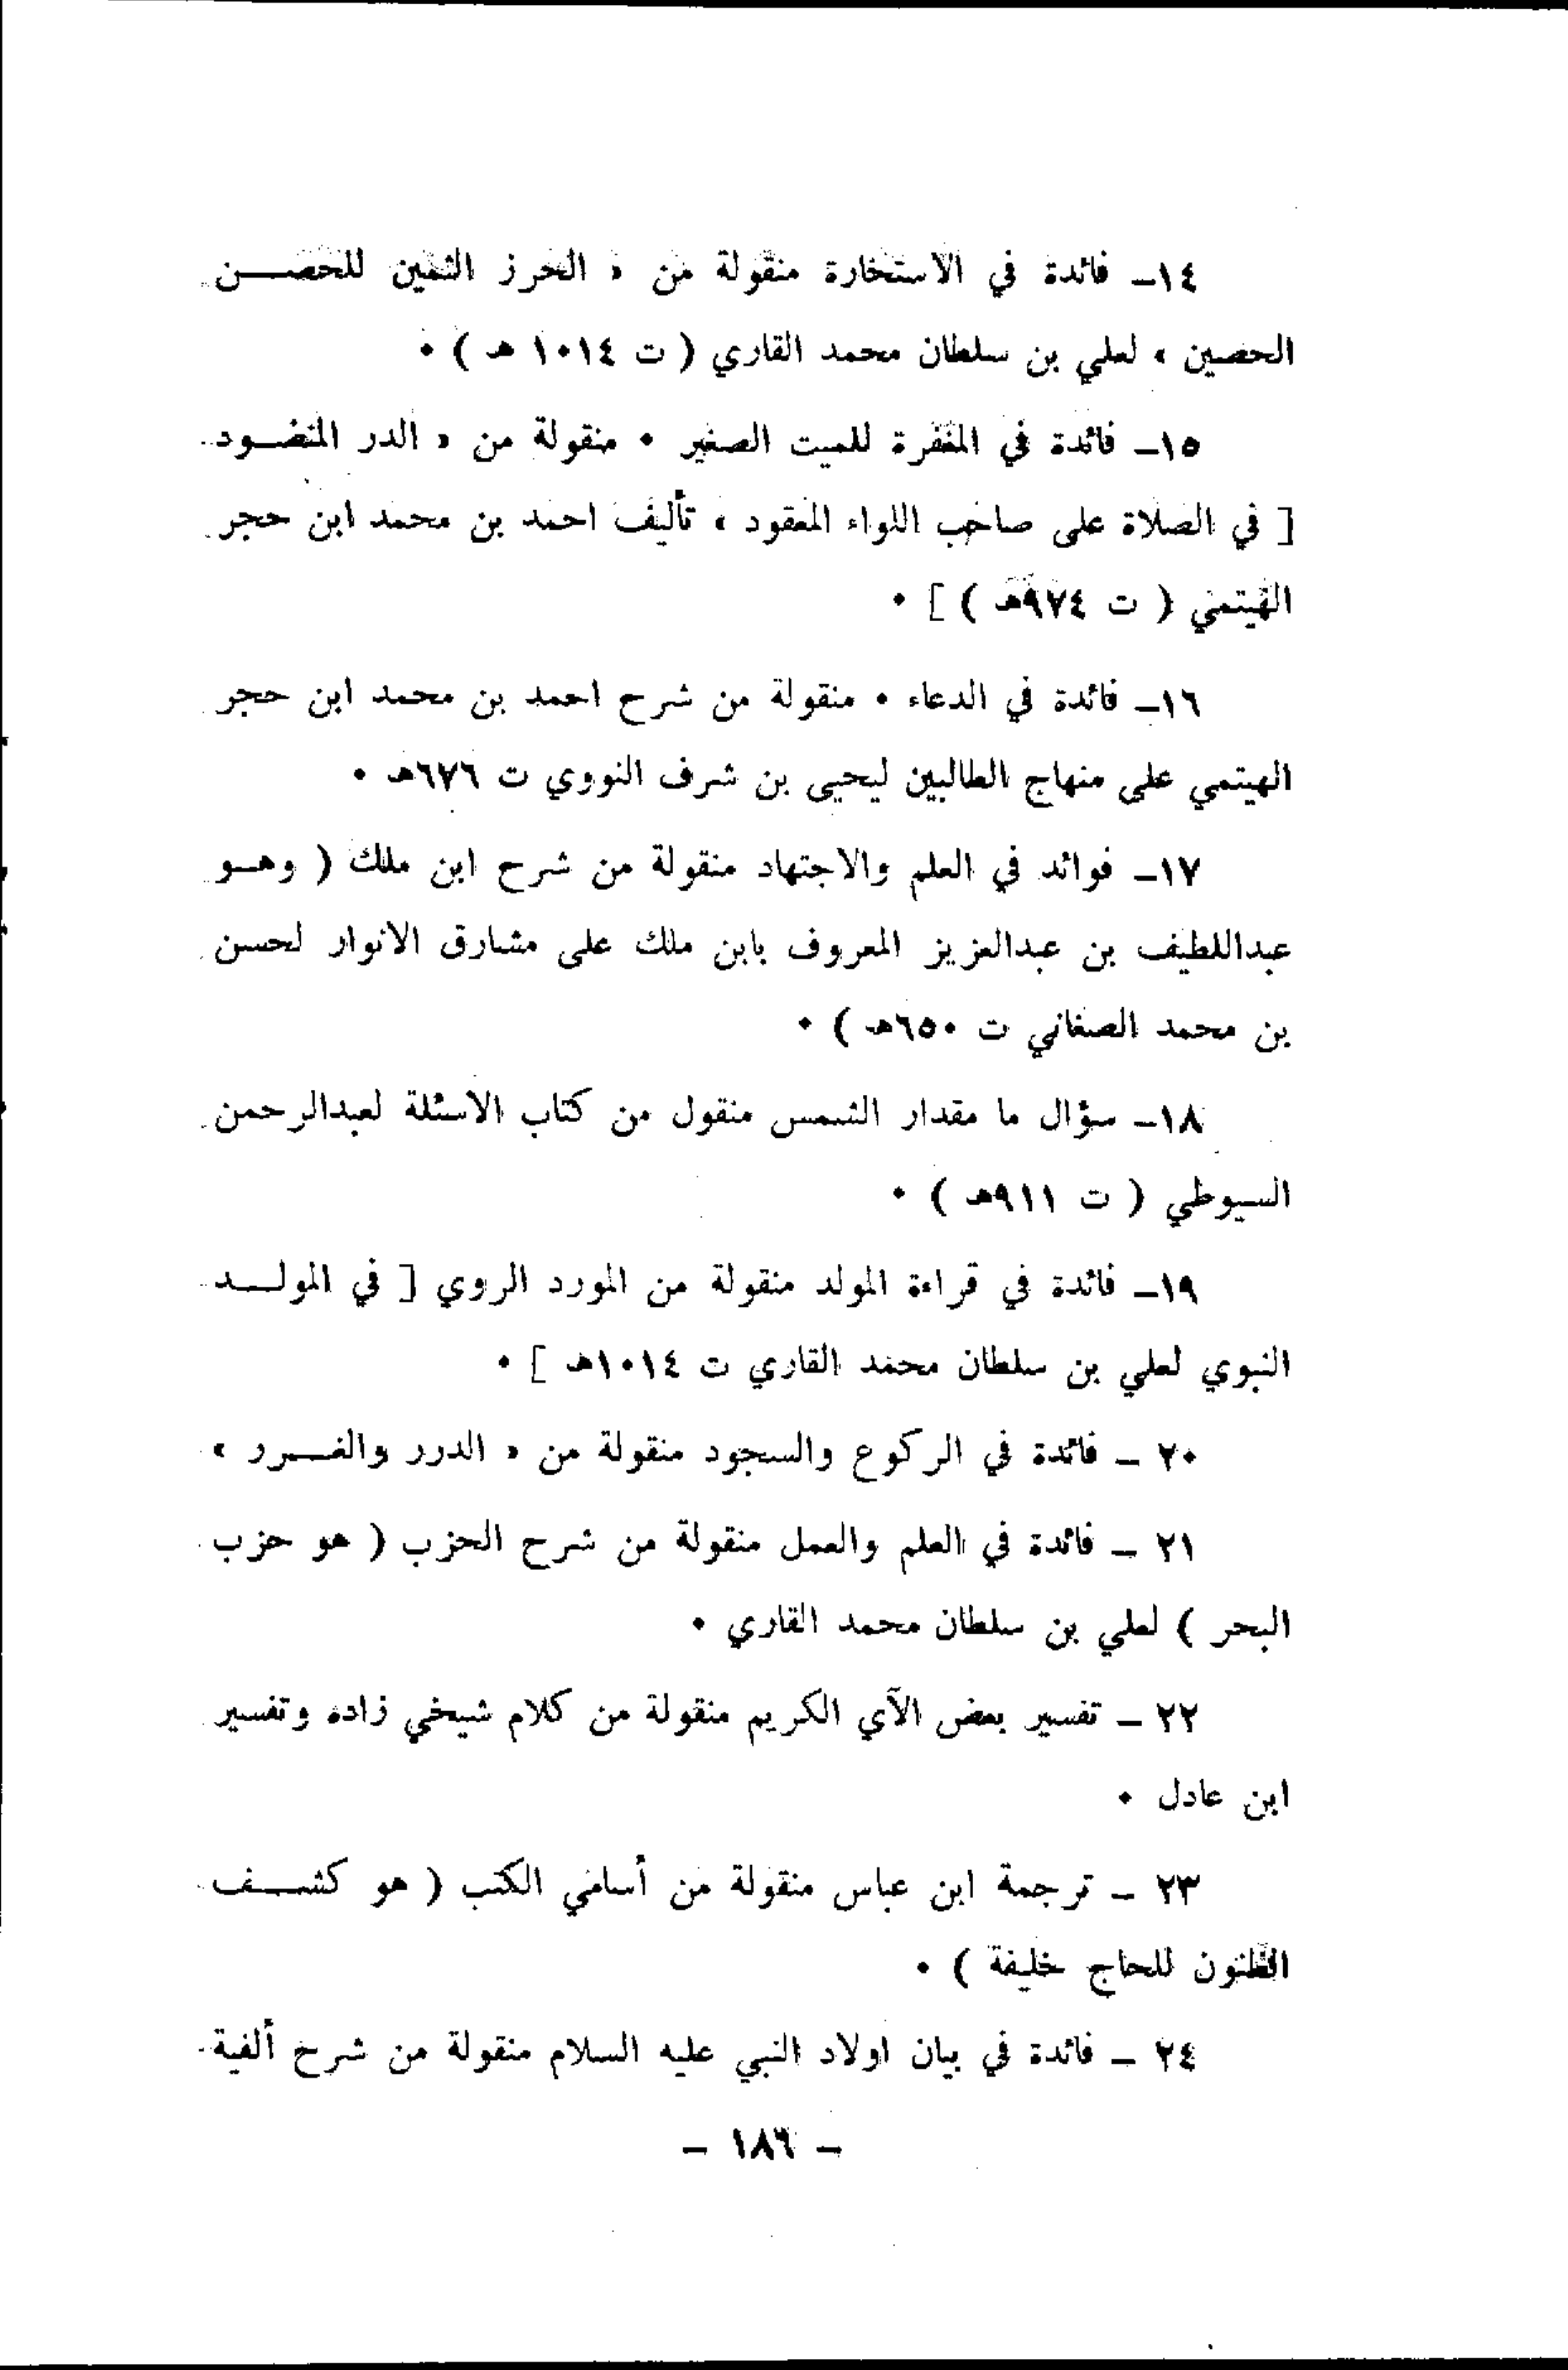 ١٤ـ فائدة في الاستخارة منقولة من « الحرز الثمين للحصــن
الحصين » لعلي بن سلطان محمد القاري ( ت ١٠١٤ هـ ) ٠
١٥ـ فائدة في المغفرة للميت الصغير ٠ منقولة من « الدر المنضــود
[ في الصلاة على صاحب اللواء المعقود » تأليف احمد بن محمد ابن حجر
الهيتمي ( ت ٩٧٤هـ ) ] ٠
١٦ـ فائدة في الدعاء ٠ منقولة من شرح احمد بن محمد ابن حجر
الهيتمي على منهاج الطالبين ليحيى بن شرف النووي ت ٦٧٦هـ ٠
١٧ـ فوائد في العلم والاجتهاد منقولة من شرح ابن ملك ( وهــو
عبداللطيف بن عبدالعزيز المعروف بابن ملك على مشارق الانوار لحسن
بن محمد الصغاني ت ٦٥٠هـ ) ٠
١٨ـ سؤال ما مقدار الشمس منقول من كتاب الاسئلة لعبدالرحمن
السيوطي ( ت ٩١١هـ ) ٠
١٩ـ فائدة في قراءة المولد منقولة من المورد الروي [ في المولــد
النبوي لعلي بن سلطان محمد القاري ت ١٠١٤هـ ] ٠
٢٠ ـ فائدة في الركوع والسجود منقولة من « الدرر والغــرر »
٢١ ـ فائدة في العلم والعمل منقولة من شرح الحزب ( هو حزب
البحر ) لعلي بن سلطان محمد القاري ٠
٢٢ ـ تفسير بعض الآي الكريم منقولة من كلام شيخي زاده وتفسير
ابن عادل ٠
٢٣ ـ ترجمة ابن عباس منقولة من أسامي الكتب ( هو كشــف
الظنون للحاج خليفة ) ٠
٢٤ ـ فائدة في بيان اولاد النبي عليه السلام منقولة من شرح ألفية
ـ ١٨٦ ـ